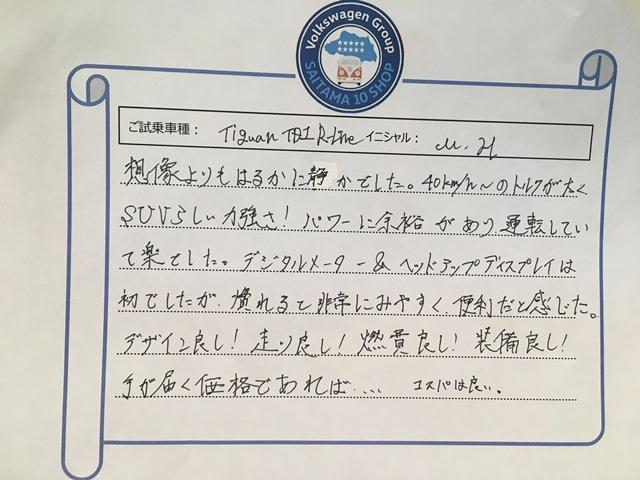 Volkswagen Group
SAITAMA 10 SHOP
ご試乗車種： Tiguan TDI R-Line イニシャル： M.H
想像よりもはるかに静かでした。40km/h〜のトルクが太く
SUVらしい力強さ！パワーに余裕があり運転してい
て楽でした。デジタルメーター&ヘッドアップディスプレイは
初でしたが、慣れると非常にみやすく便利だと感じた。
デザイン良し！走り良し！燃費良し！装備良し！
手が届く価格であれば.... コスパは良い。